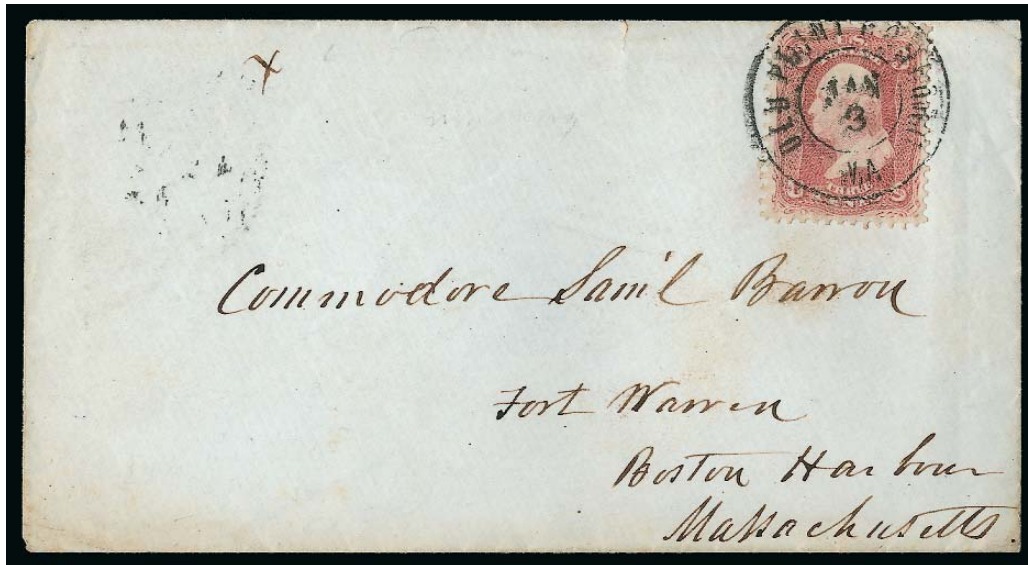 OLD POINT COMFORT
JAN
3
VA
Commodore Sam'l Barron
Fort Warren
Boston Harbour
Massachusetts